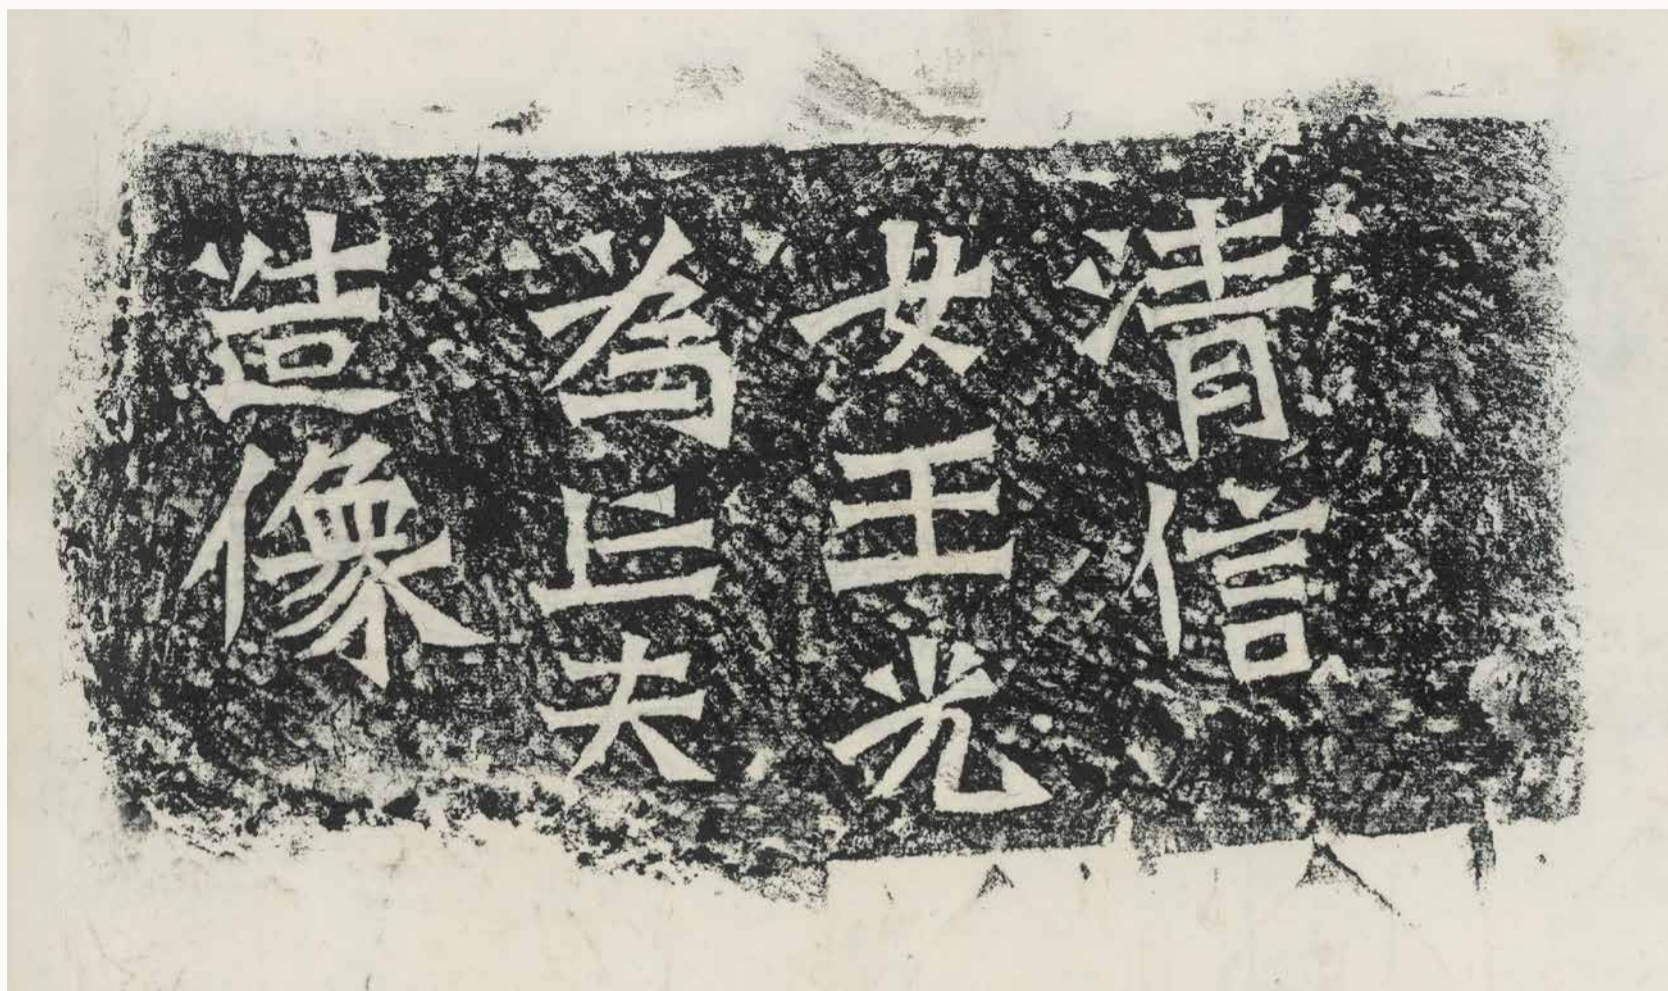 清信
女王光
為亡夫
造像